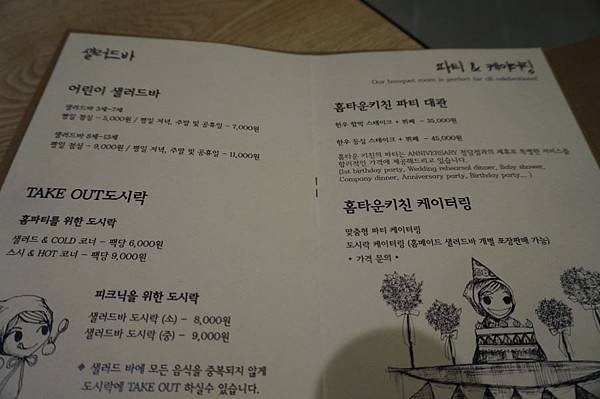 샐러드바
어린이 샐러드바
샐러드바 3세-7세
평일 점심 - 5,000원 / 평일 저녁, 주말 및 공휴일 - 7,000원
샐러드바 8세-13세
평일 점심 - 9,000원 / 평일 저녁, 주말 및 공휴일 - 11,000원
TAKE OUT도시락
홈파티를 위한 도시락
샐러드 & COLD 코너 - 팩당 6,000원
스시 & HOT 코너 - 팩당 9,000원
피크닉을 위한 도시락
샐러드바 도시락 (소) - 8,000원
샐러드바 도시락 (중) - 9,000원
◆ 샐러드 바에 모든 음식을 중복되지 않게
도시락에 TAKE OUT 하실수 있습니다.
파티 & 케이터링
Our banquet room is perfect for all celebrations!
홈타운키친 파티 대관
한우 함박 스테이크 + 뷔페 - 35,000원
한우 등심 스테이크 + 뷔페 - 45,000원
홈타운 키친의 파티는 ANNIVERSARY 청담점과의 제휴로 특별한 서비스를
합리적인 가격에 제공해드리고 있습니다.
(1st birthday party, Wedding rehearsal dinner, Baby shower,
Company dinner, Anniversary party, Birthday party....)
홈타운키친 케이터링
맞춤형 파티 케이터링
도시락 케이터링 (홈메이드 샐러드바 개별 포장판매 가능)
• 가격 문의 •